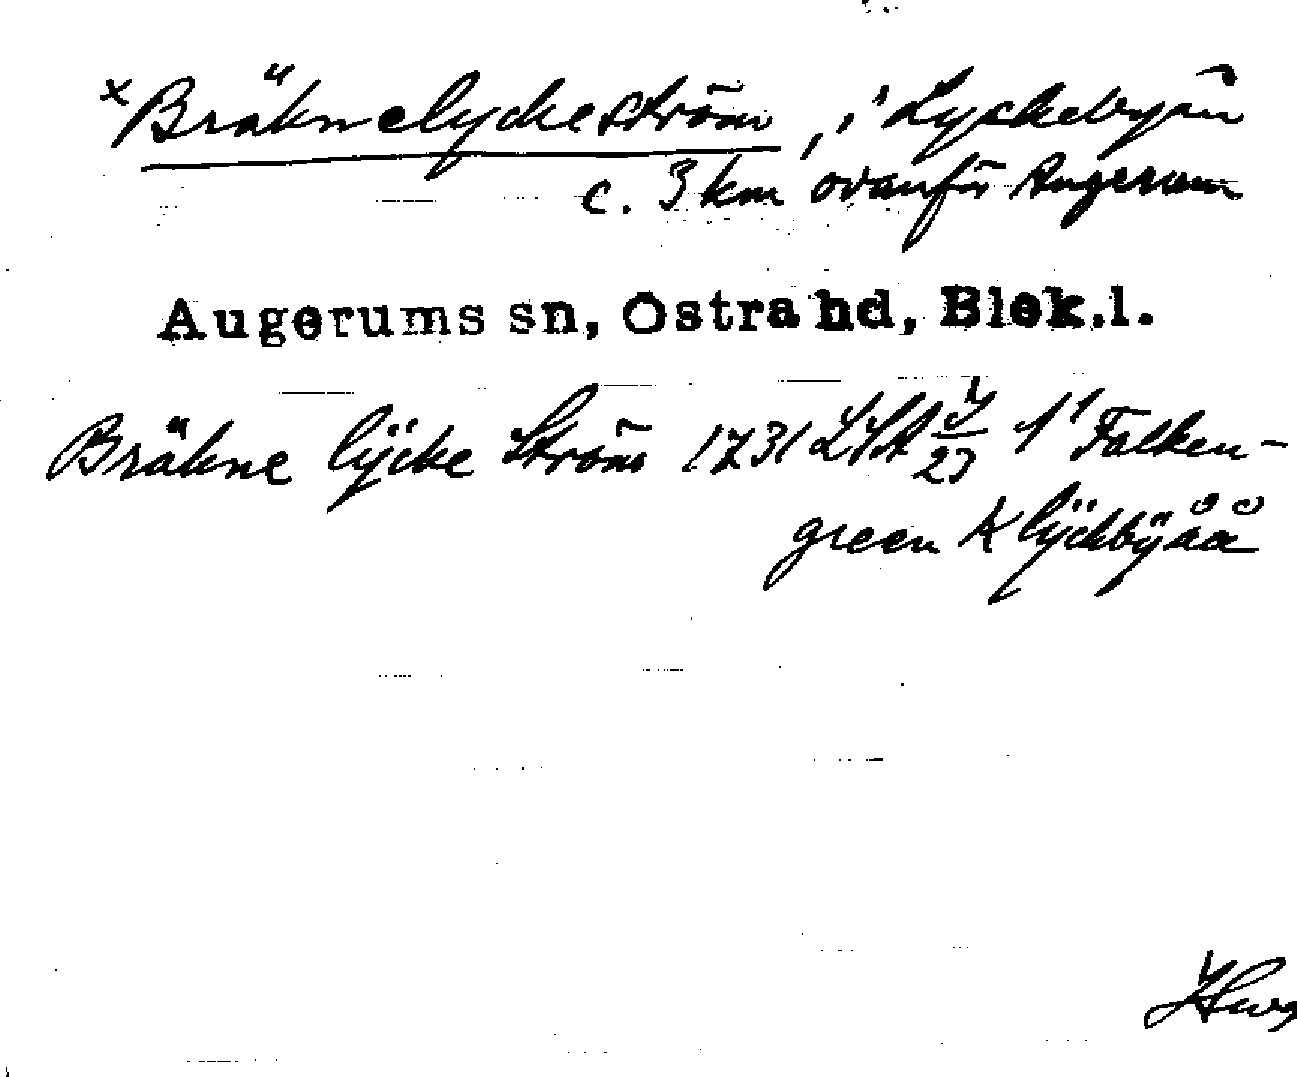 x Bräknelyckeström, i Lyckebyån
c. 3 km ovanför Augerum
Augerums sn, Östra hd, Blek.l.
Bräkne lÿcke Ström 1731 LSA I/27 1' Falken-
green K lÿckbÿåå